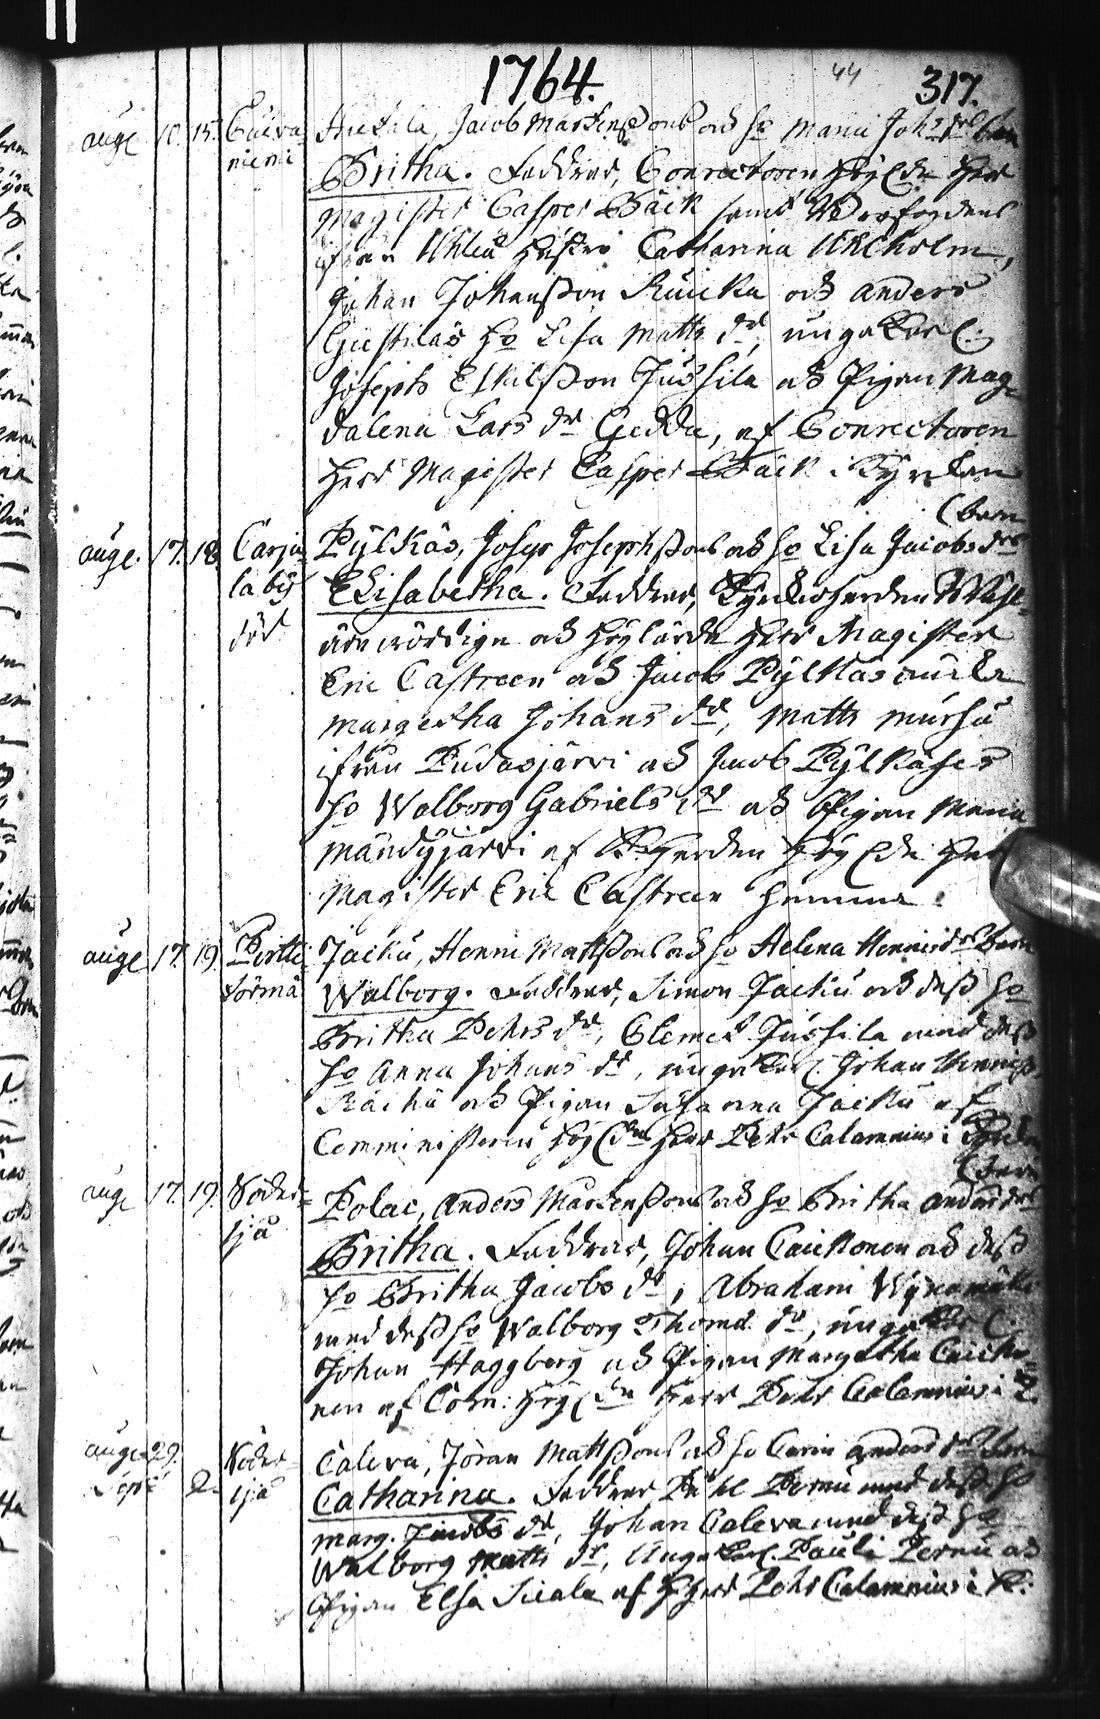 1764. 44 317.
aug. 10. 15. Cuiva- Huckala, Jacob Mårtenssons och ho Maria Johs drs barn
niemi Britha. Faddrar, Conrectoren höglde Herr
Magister Casper Bäck samt
ifrån Uhleå hustru Catharina Uhlholm,
Johan Johansson Ruicka och Anders
Gustilas ho Lisa Matts dr, unga Karl.
Joseph Eskilsson Jussila och Pigan Mag-
dalena Lars dr Gedda, af Conrectoren
Herr Magister Casper Bäck i Kyrckan
(barn
aug. 17. 18 Carja- Pylkäs, Josep Josephssons och ho Lisa Jacobs drs
la by Elisabetha. Faddrar, Kyrckioherden Wäl-
död ärewördige och höglärde Herr Magister
Eric Castreen och Jacob Pylkäs
Margetha Johans dr, Matts Mursu
ifrån Pudasjärvi och Jacob Pylkäses
ho Walborg Gabriels dr och Pigan Maria
Mändyjärvi af Kherden höglde Herr
Magister Eric Castreen hemma.
auge 17. 19. Pertti- Jacku, Henric Mattssons och ho Helena Henrics drs barn
törmä Walborg. Faddrar, Simon Jacku och dess ho
Britha Pehrs dr, Clemet Jussila med dess
ho Anna Johans dr, unga Karl. Johan Henricss.
Räihä och Pigan Susanna Jacku af
Comministern högl den Herr Pehr Calamnius i Kyrckan
(barn
auge 17. 19. Söder- Polac, Anders Mårtenssons och ho Britha Anders drs
sjä Britha. Faddrar, Johan Cauckonen och dess
ho Britha Jacobs dr, Abraham
med dess ho Walborg Thomæ dr, unga Karl.
Johan Haggberg och Pigan Margetha Caucko-
nen af Com: högl den Herr Pehr Calamnius i K.
auge 29. Söder- Caleva, Jöran Mattssons och ho Carin Anders drs barn
Sept: 2. sjä Catharina. Faddrar Påhl Pernu med dess ho
Marg. Jacobs dr, Johan Caleva med dess ho
Walborg Matts dr, Unga Karl. Pauli Pernu och
Pigan Elsa Siuala af Herr Pehr Calamnius i K: